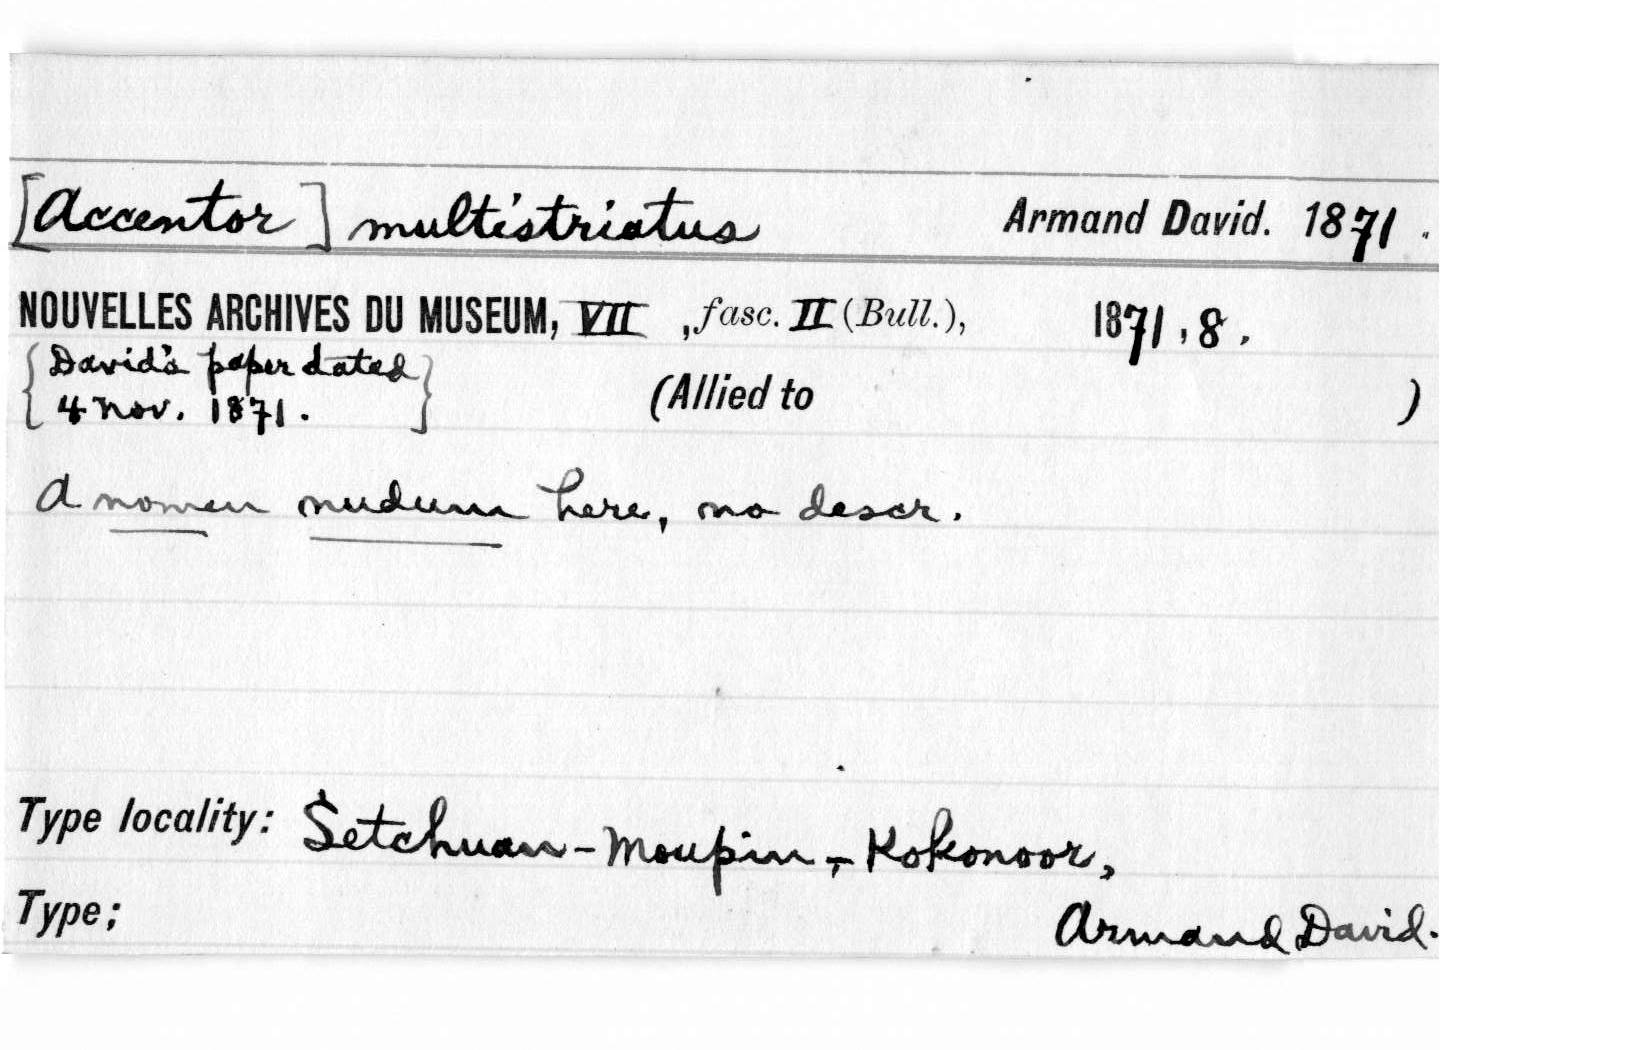 [Accentor] multistriatus Armand David. 1871.
NOUVELLES ARCHIVES DU MUSEUM, VII , fasc. II (Bull.), 1871, 8.
{David's paper dated
4 Nov. 1871.} (Allied to )
A nomen nudum here, no descr.
Type locality: Setchuan - Moupin, - Kokonoor,
Type; Armand David.